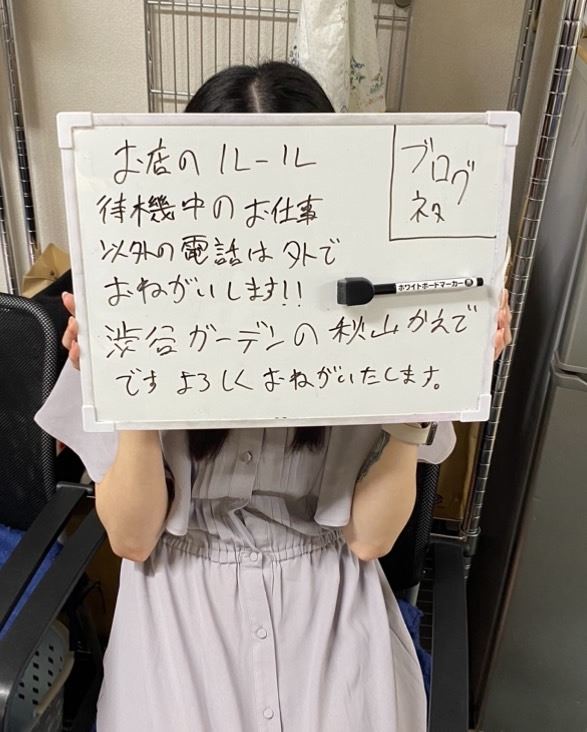 お店のルール
待機中のお仕事
以外の電話は外で
おねがいします!!
渋谷ガーデンの秋山かえで
です よろしくおねがいたします。
ブログ
ネタ
ホワイトボードマーカー